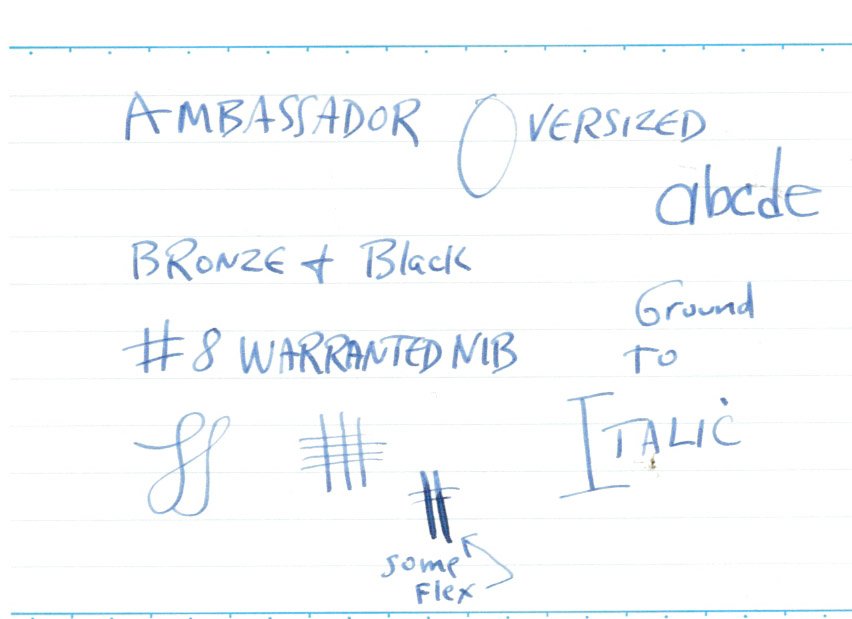 AMBASSADOR OVERSIZED
abcde
BRONZE & Black
Ground
#8 WARRANTED NIB
TO
ITALIC
some
Flex